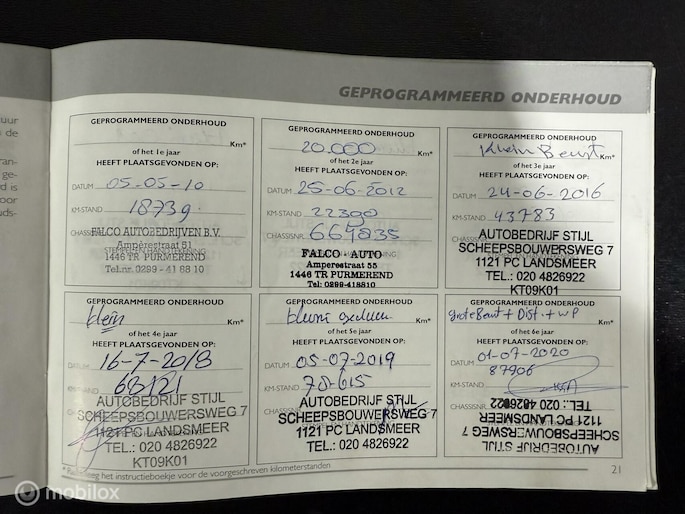 uur
n de
ran-
ge-
d is
oor
uds-
GEPROGRAMMEERD ONDERHOUD
GEPROGRAMMEERD ONDERHOUD
Km*
of het 1e jaar
HEEFT PLAATSGEVONDEN OP:
DATUM 05-05-10
KM-STAND 18739
CHASSISNR.
FALCO AUTOBEDRIJVEN B.V.
Amperestraat 81
STEMPEL EN HANDTEKENING
1446 TR PURMEREND
Tel.nr. 0299-41 88 10
GEPROGRAMMEERD ONDERHOUD
20.000 Km*
of het 2e jaar
HEEFT PLAATSGEVONDEN OP:
DATUM 25-06-2012
KM-STAND 22390
CHASSISNR. 664835
FALCO - AUTO
Amperestraat 55
1446 TR PURMEREND
Tel: 0299-418810
GEPROGRAMMEERD ONDERHOUD
Klein Beurt Km*
of het 3e jaar
HEEFT PLAATSGEVONDEN OP:
DATUM 24-06-2016
KM-STAND 43783
AUTOBEDRIJF STIJL
SCHEEPSBOUWERSWEG 7
1121 PC LANDSMEER
TEL.: 020 4826922
KT09K01
GEPROGRAMMEERD ONDERHOUD
klein Km*
of het 4e jaar
HEEFT PLAATSGEVONDEN OP:
DATUM 16-7-2018
KM-STAND
AUTOBEDRIJF STIJL
SCHEEPSBOUWERSWEG 7
1121 PC LANDSMEER
TEL.: 020 4826922
KT09K01
GEPROGRAMMEERD ONDERHOUD
Km*
of het 5e jaar
HEEFT PLAATSGEVONDEN OP:
DATUM 05-07-2019
KM-STAND 78-615
AUTOBEDRIJF STIJL
SCHEEPSBOUWERSWEG 7
1121 PC LANDSMEER
TEL.: 020 4826922
GEPROGRAMMEERD ONDERHOUD
grote Beurt + Dist. + WP Km*
of het 6e jaar
HEEFT PLAATSGEVONDEN OP:
DATUM 01-07-2020
KM-STAND 87906
CHASSISNR.
AUTOBEDRIJF STIJL
SCHEEPSBOUWERSWEG 7
1121 PC LANDSMEER
TEL.: 020 4826922
het instructieboekje voor de voorgeschreven kilometerstanden
21
mobilox